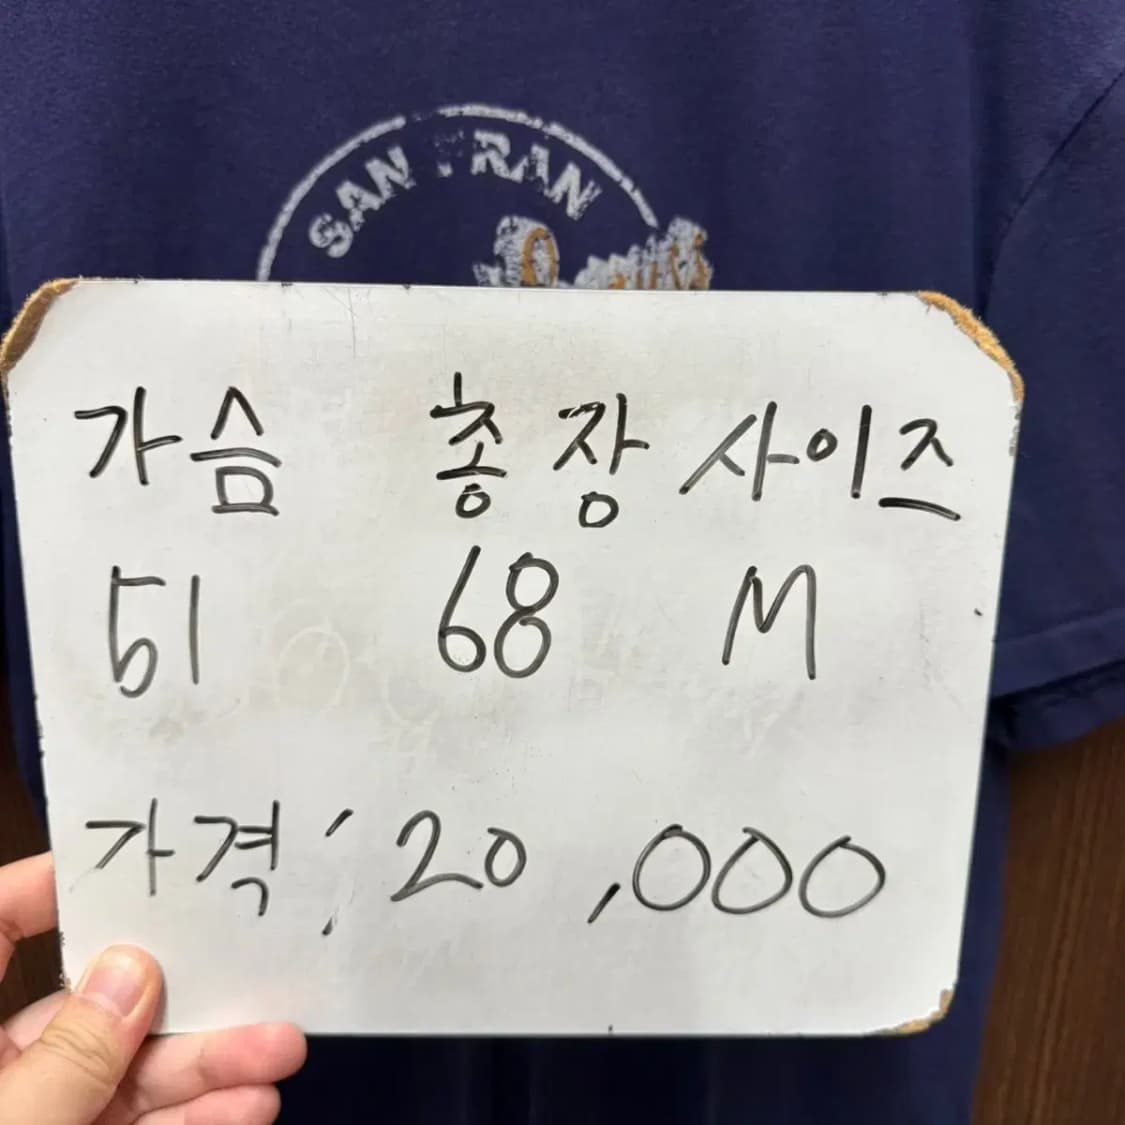 SAN FRAN
가슴 총장 사이즈
51 68 M
가격: 20,000